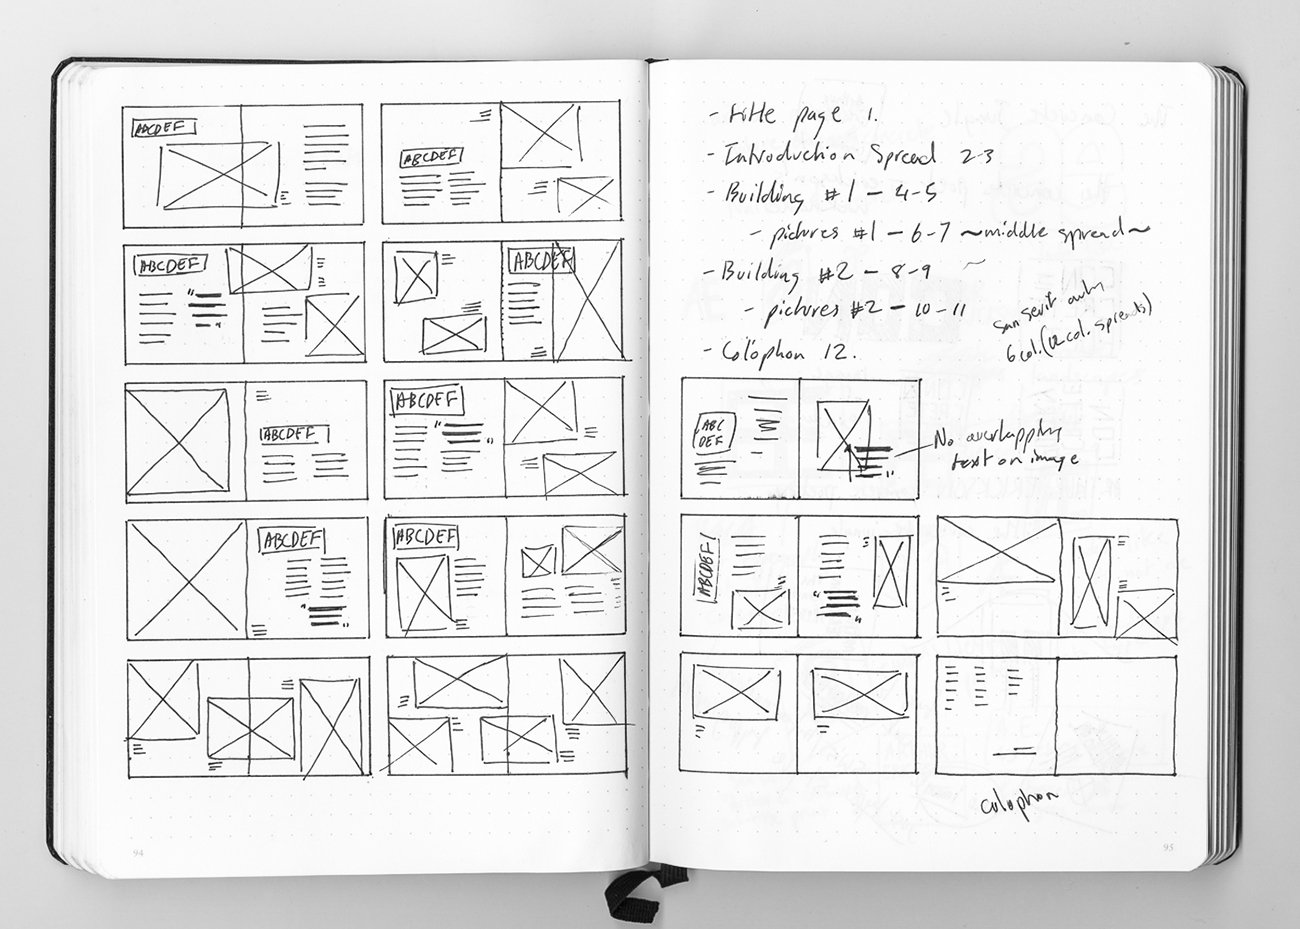 ABCDEF
ABCDEF
ABCDEF
ABCDEF
ABCDEF
ABCDEF
ABCDEF
ABCDEF
94
- title page 1.
- Introduction Spread 2-3
- Building #1 - 4-5
- pictures #1 - 6-7 ~middle spread~
- Building #2 - 8-9 ~
- pictures #2 - 10-11
- Colophon 12.
San serif only
6 col. (12 col. spreads)
ABC
DEF
No overlapping
text on image
ABCDEF
colophon
95